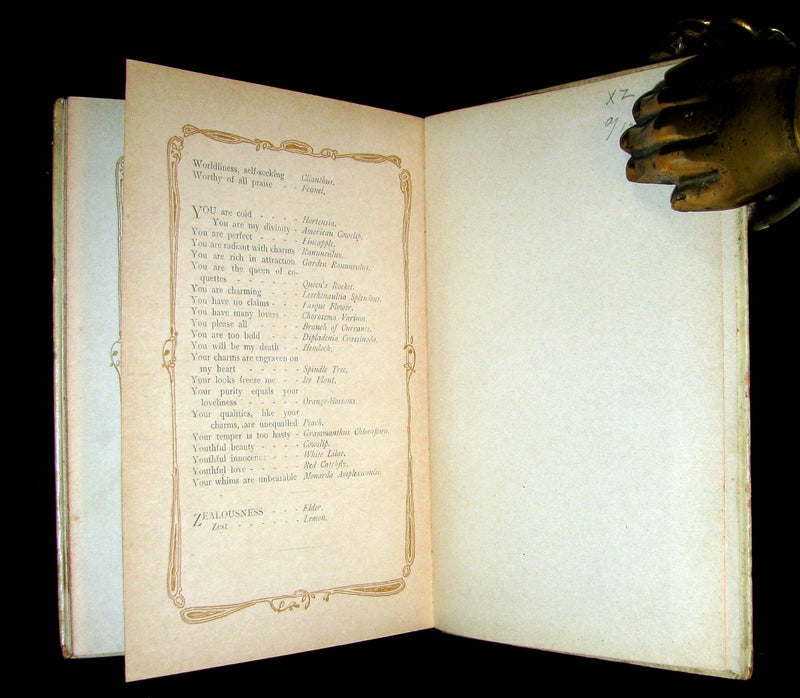 Worldliness, self-seeking - Clianthus.
Worthy of all praise - - Fennel.
YOU are cold - - - - Hortensia.
You are my divinity - American Cowslip.
You are perfect - - - - Pineapple.
You are radiant with charms Ranunculus.
You are rich in attraction Garden Ranunculus.
You are the queen of co-
quettes - - - - - - Queen's Rocket.
You are charming - - - Leschenaultia Splendens.
You have no claims - - - Pasque Flower.
You have many lovers - - Chorozema Varium.
You please all - - - - Branch of Currants.
You are too bold - - - Dipladenia Crassinoda.
You will be my death - - Hemlock.
Your charms are engraven on
my heart - - - - - Spindle Tree.
Your looks freeze me - - Ice Plant.
Your purity equals your
loveliness - - - - - Orange-blossoms.
Your qualities, like your
charms, are unequalled Peach.
Your temper is too hasty - Grammanthus Chloraflora.
Youthful beauty - - - - Cowslip.
Youthful innocence - - - White Lilac.
Youthful love - - - - - Red Catchfly.
Your whims are unbearable Monarda Amplexicaulis.
ZEALOUSNESS - - - Elder.
Zest - - - - - - Lemon.
XZ